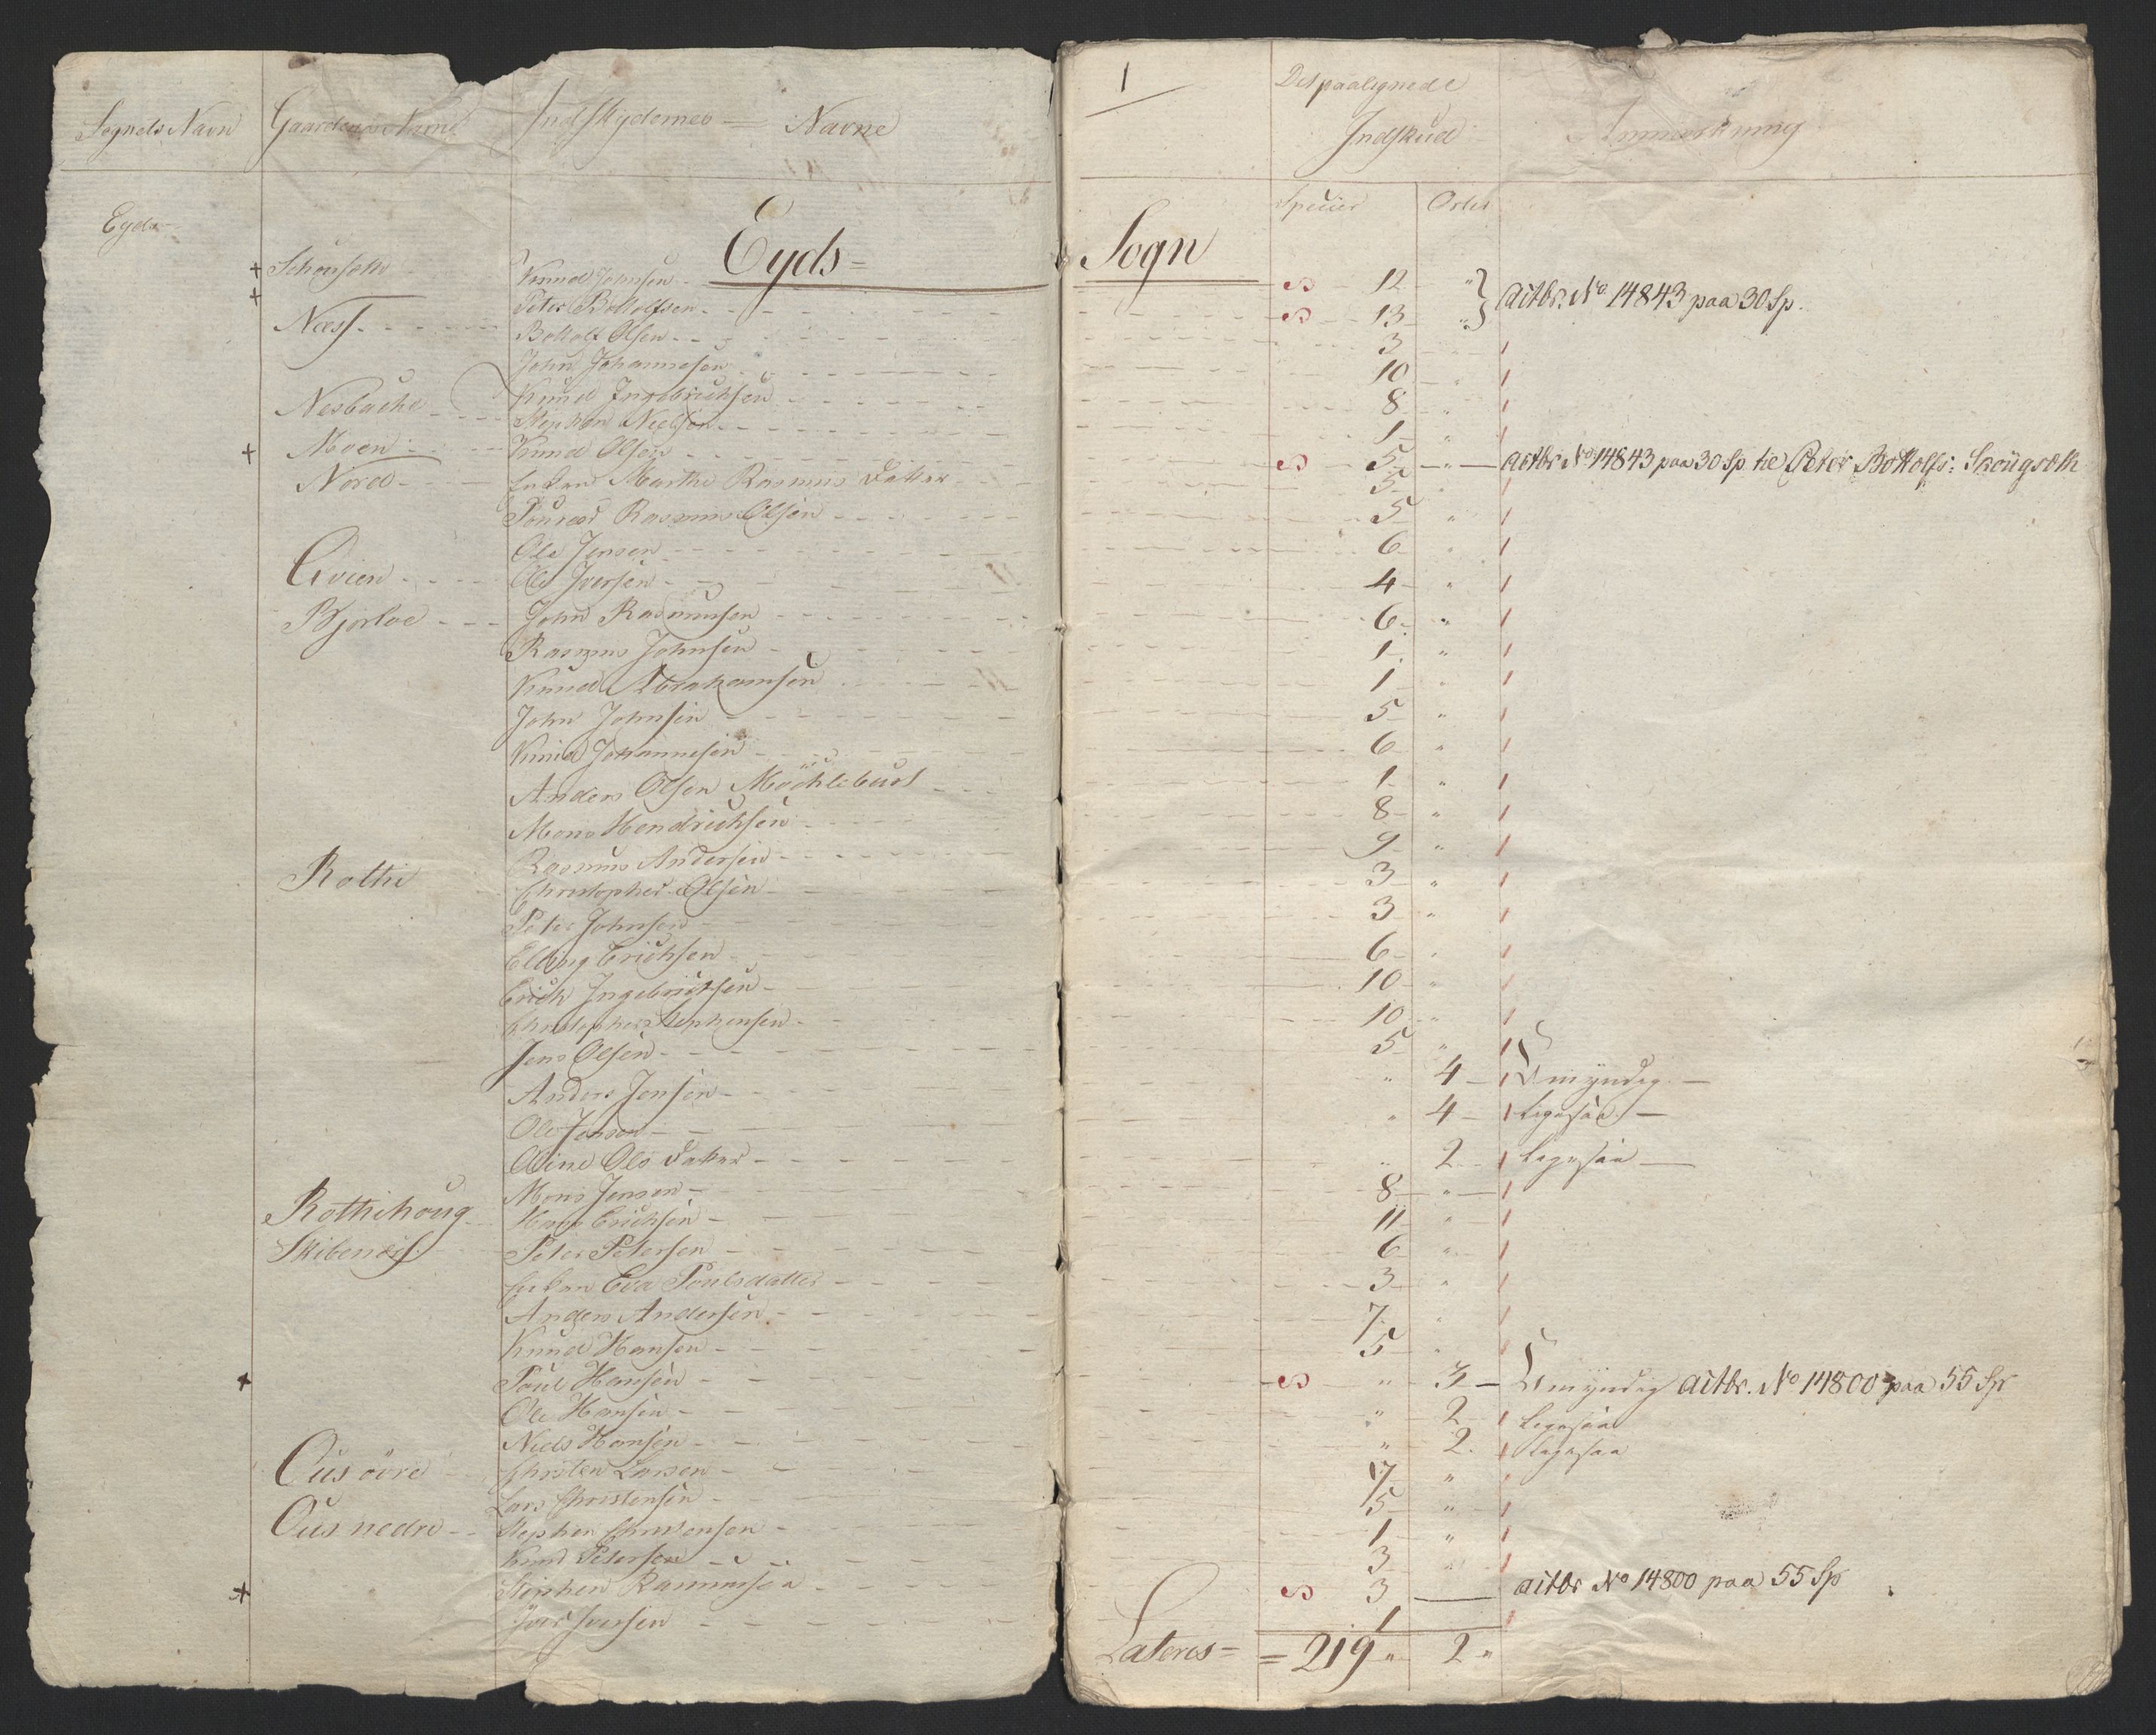 Sognets Navn Gaardenes Navne Indskydernes Navne 1 Det paalignede Indskud Anmerkning
Specier Orter
Eyds
Eyds= Sogn
+ Knud Johnsen 12 " Actbr. No 14843 paa 30 Sp.
+ Næss Peter Bottolfsen 13 "
Bottolf Olsen 3
John Johannesen 10 "
Knud Ingebrichtsen 8 "
Stephen Nielsen 1 "
+ Moen Knud Olsen 5 " Actbr No 14843 paa 30 Sp til Peter Bottolfs: Skougseth
Nord Enken Marthe Rasmus Datter 5 "
Rasmus Olsen 5 "
Ole Jensen 6 "
Qvien Ole Iversen 4 "
Bjorloe John Rasmusen 6 "
Rasmus Johnsen 1 "
Knud Abrahamsen 1 "
John Johnsen 5 "
Knud Johannesen 6 "
Anders Olsen 1 "
Mons Hendrichsen 8 "
Rasmus Andersen 9 "
Rothe Christopher Olsen 3 "
Peter Johnsen 3 "
Elling Erichsen 6 "
Erick Ingebrichtsen 10 "
Christopher Stephensen 10 "
Jens Olsen 5 "
Anders Jensen " 4 Umyndig
Ole Jensen " 4 Ligesaa
Oline Ols Datter " 2 Ligesaa
Mons Jensen 8 "
Rothehoug Hans Erichsen 11 "
Skibenes Peter Petersen 6 "
Enken Eva Poulsdatter 3 "
Anders Andersen 7 "
Knud Hansen 5 "
+ Paul Hansen " 3 Umyndig Actbr. No 14800 paa 55 Sp
Ole Hansen " 2 Ligesaa
Niels Hansen " 2 Ligesaa
Ous övre Christen Larsen 17 "
Lars Christensen 5 "
Ous nedre Stephen Christensen 1 "
Knud Petersen 3 "
+ Stephen Rasmusen 3 Actbr No 14800 paa 55 Sp
Iver Iversen 1
Lateres = 219 " 2 "